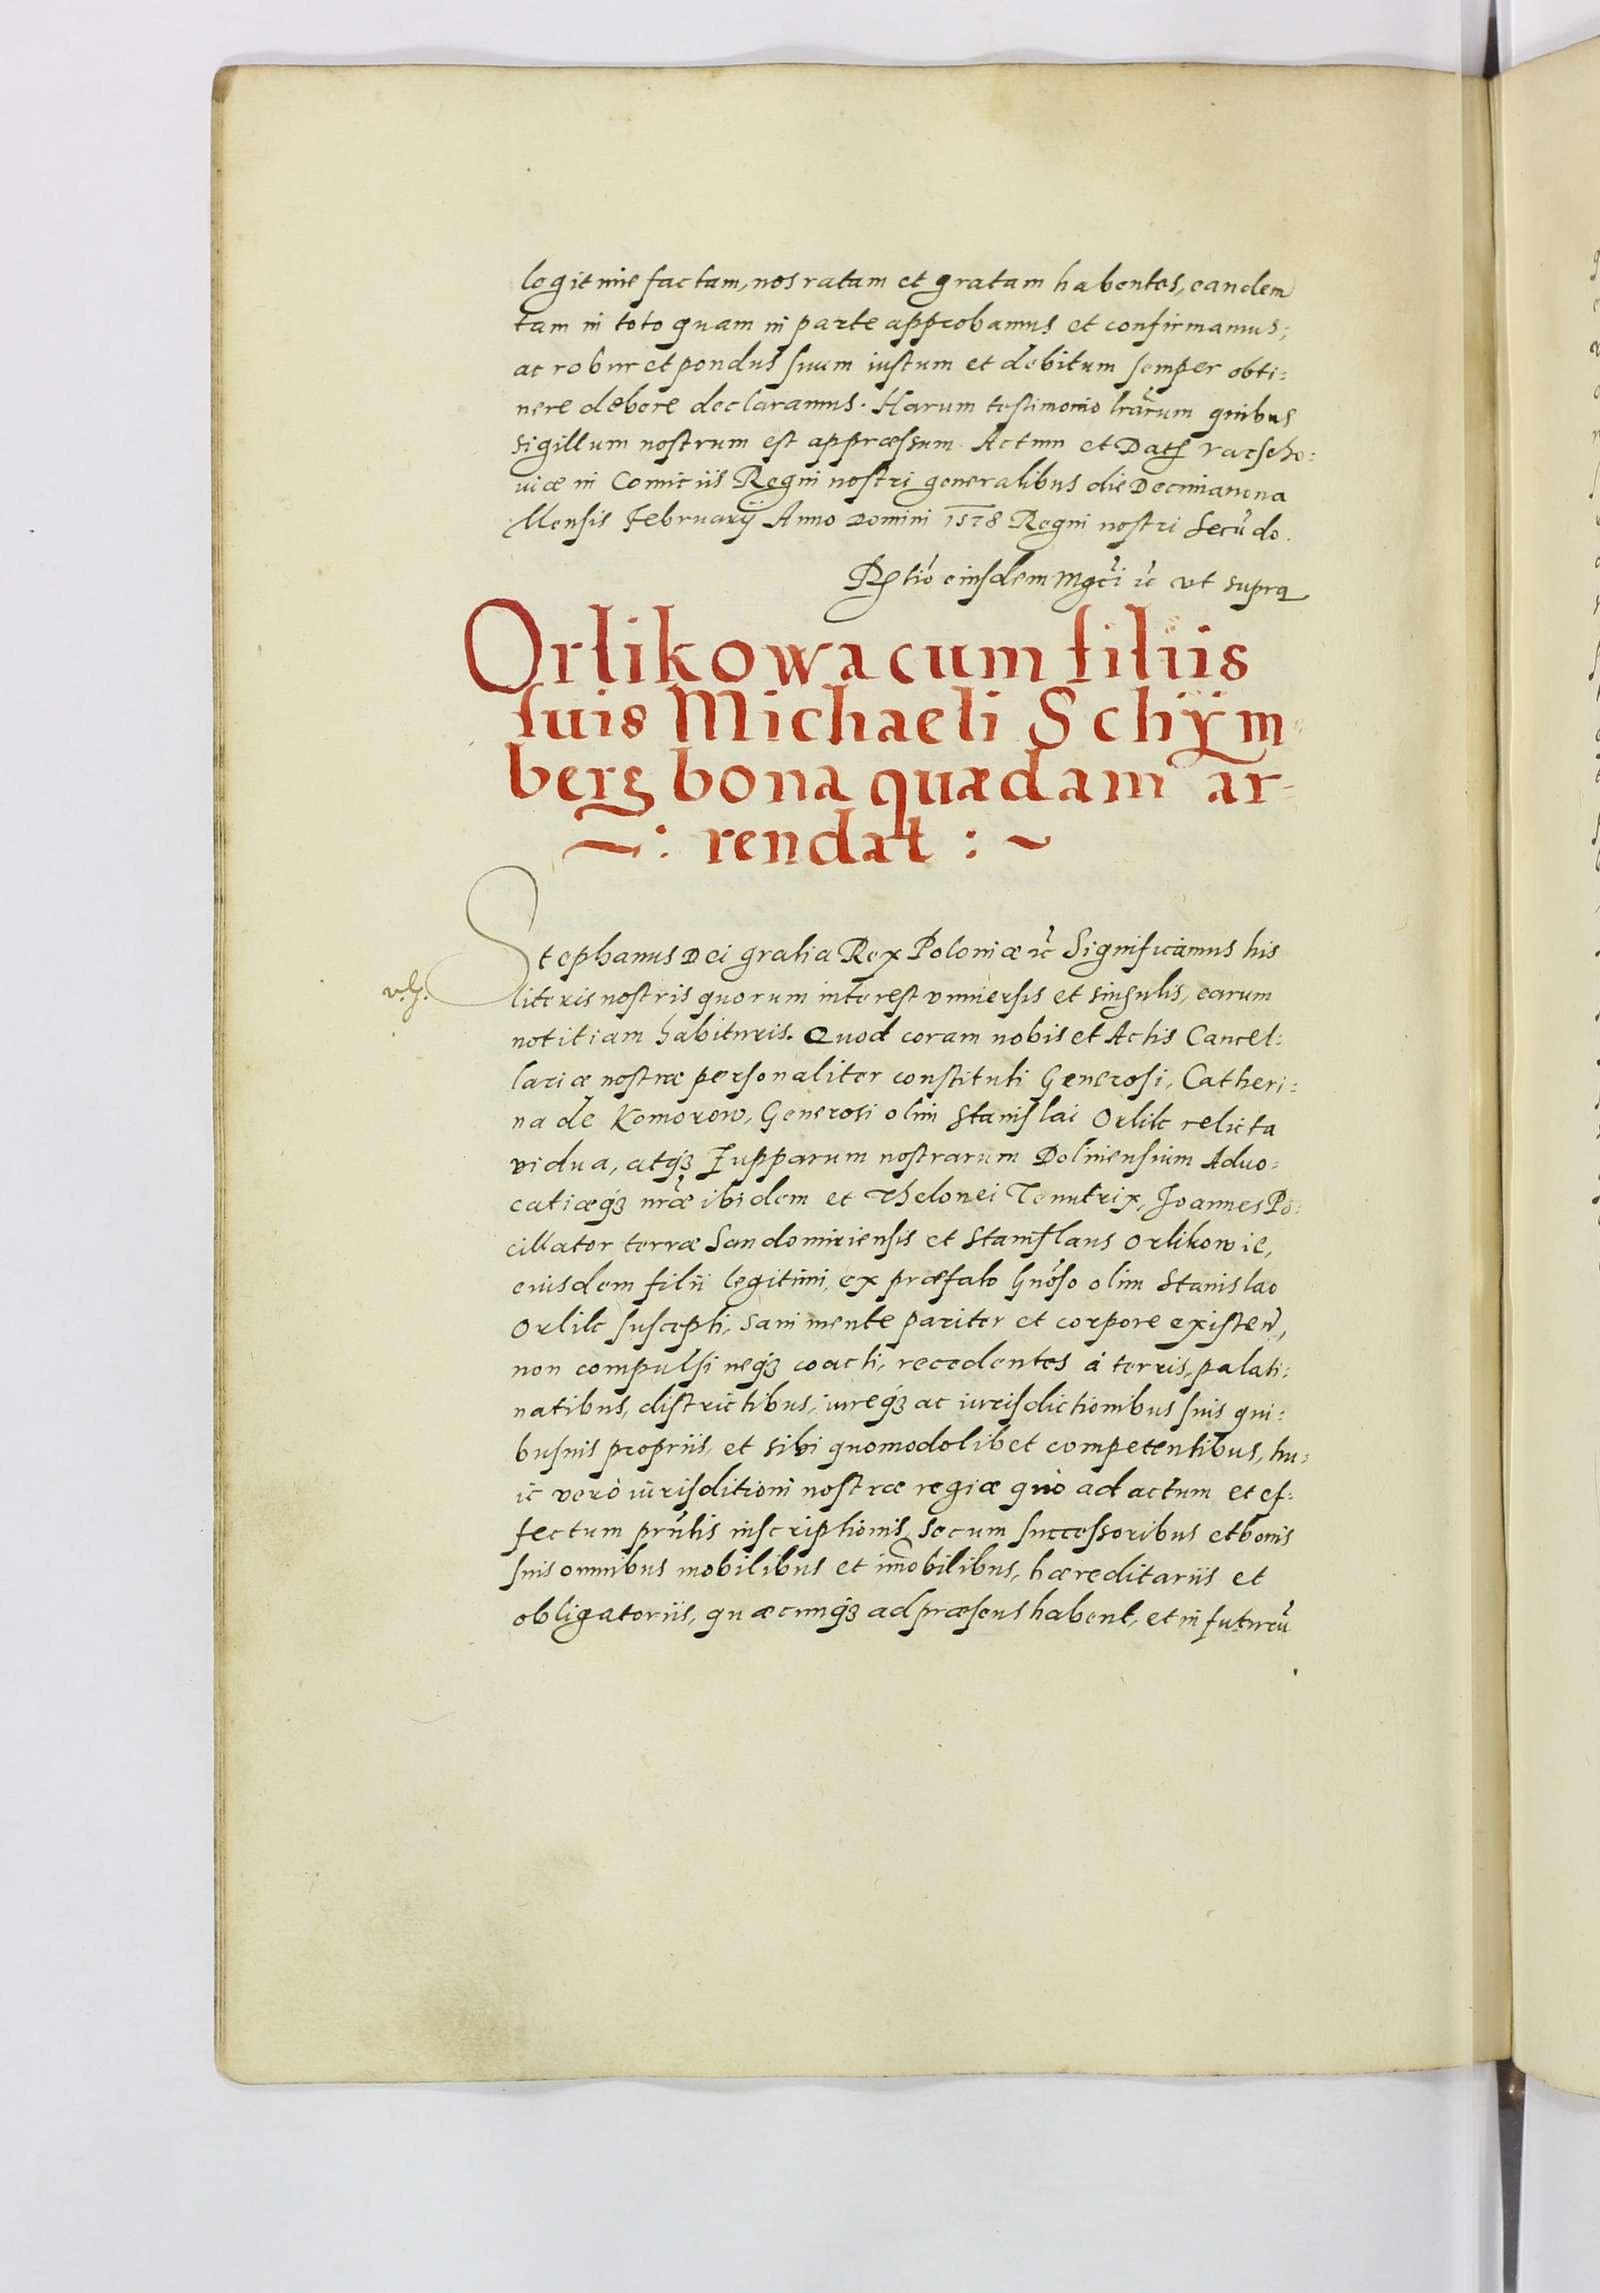 legitime factam, nos ratam et gratam habentes, eandem
tam in toto quam in parte approbamus et confirmamus;
ac robur et pondus suum iustum et debitum semper obti:
nere debere declaramus. Harum testimonio lrarum quibus
sigillum nostrum est appræssum. Actum et Dat Varscho:
uiæ in Comiciis Regni nostri generalibus die Decimanona
Mensis Februarij Anno Domini 1578 Regni nostri Secũdo.
Rtio eiusdem Mgci ic ut supra
Orlikowa cum filiis
suis Michaeli Schÿm-
berg bona quædam ar-
~: rendat :~
Stephanus Dei gratia Rex Poloniæ ic Significamus his
literis nostris quorum interest vniuersis et singulis, earum
notitiam habituris. Quod coram nobis et Actis Cancel:
lariæ nostræ personaliter constituti Generosi, Catheri:
na de Komorow, Generosi olim Stanislai Orlik relicta
vidua, atq3 Zupparum nostrarum Dolinensium Aduo:
catiæq3 nræ ibidem et Thelonei Tenutrix, Joannes Po:
cillator terræ Sandomiriensis et Stanislaus Orlikowie,
eiusdem filii legitimi, ex præfato Gnoso olim Stanislao
Orlik suscepti, sani mente pariter et corpore existeñ,
non compulsi neq3 coacti, recedentes á terris, palati:
natibus, districtibus, iureq3 ac iurisdictionibus suis qui:
busuis propriis, et sibi quomodolibet competentibus, hu:
ic verò iurisditioni nostræ regiæ quò ad actum et ef:
fectum pñtis inscriptionis, se cum successoribus et bonis
suis omnibus mobilibus et im̃obilibus, hæreditariis et
obligatoriis, quæcunq3 ad præsens habent, et in futurũ